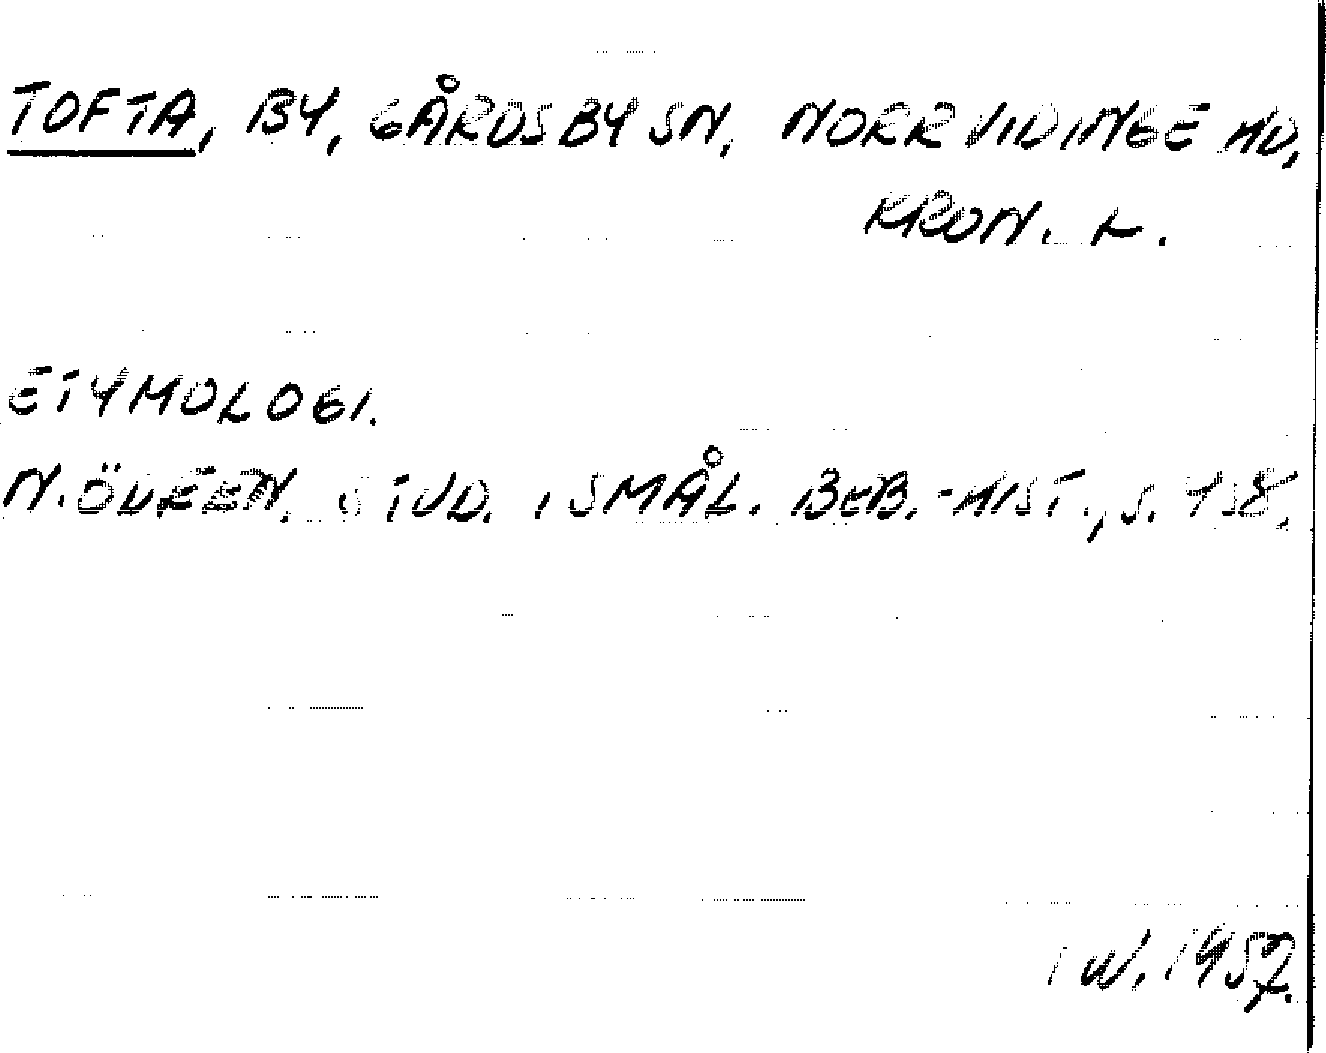 TOFTA, BY, GÅRDSBY SN, NORRVIDINGE HD,
KRON. L.
ETYMOLOGI.
N. ÖDEEN. STUD. I SMÅL. BEB.-HIST., S. 458.
I W. 1957.